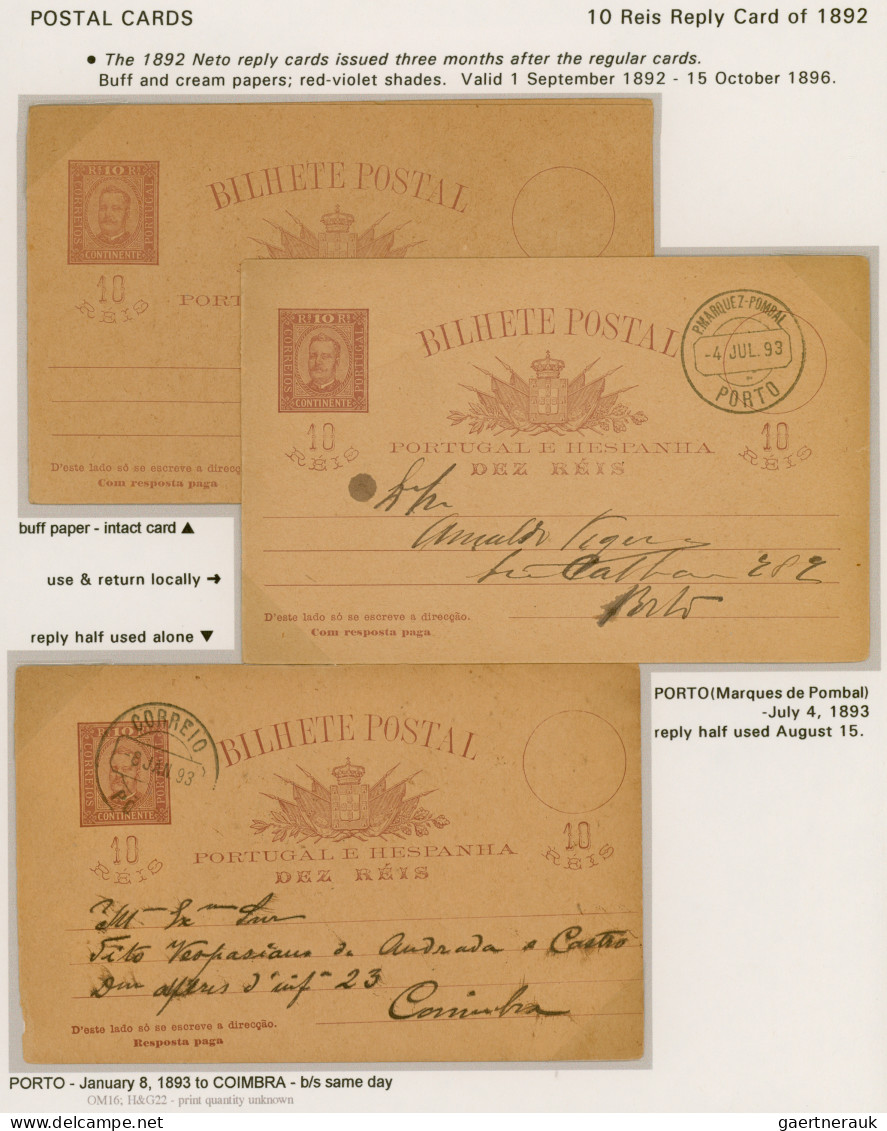 POSTAL CARDS
10 Reis Reply Card of 1892
• The 1892 Neto reply cards issued three months after the regular cards.
Buff and cream papers; red-violet shades. Valid 1 September 1892 - 15 October 1896.
Rs 10 Rs
CORREIOS
PORTUGAL
CONTINENTE
10
RÉIS
BILHETE POSTAL
PORT
D'este lado só se escreve a direcç
Com resposta paga
Rs 10 Rs
CORREIOS
PORTUGAL
CONTINENTE
10
RÉIS
BILHETE POSTAL
P.MARQUEZ-POMBAL
-4 JUL. 93
PORTO
PORTUGAL E HESPANHA
DEZ RÉIS
10
RÉIS
Arnaldo
282
Porto
D'este lado só se escreve a direcção.
Com resposta paga
buff paper - intact card ▲
use & return locally →
reply half used alone ▼
PORTO(Marques de Pombal)
-July 4, 1893
reply half used August 15.
10
CORREIOS
PORTUGAL
CONTINENTE
CORREIO
8 JAN 93
PO
10
RÉIS
BILHETE POSTAL
PORTUGAL E HESPANHA
DEZ RÉIS
10
RÉIS
Tito Vespasiano de Andrada e Castro
alferes d'inf.ª 23
Coimbra
D'este lado só se escreve a direcção.
Resposta paga
PORTO - January 8, 1893 to COIMBRA - b/s same day
OM16; H&G22 - print quantity unknown
gaertnerauk